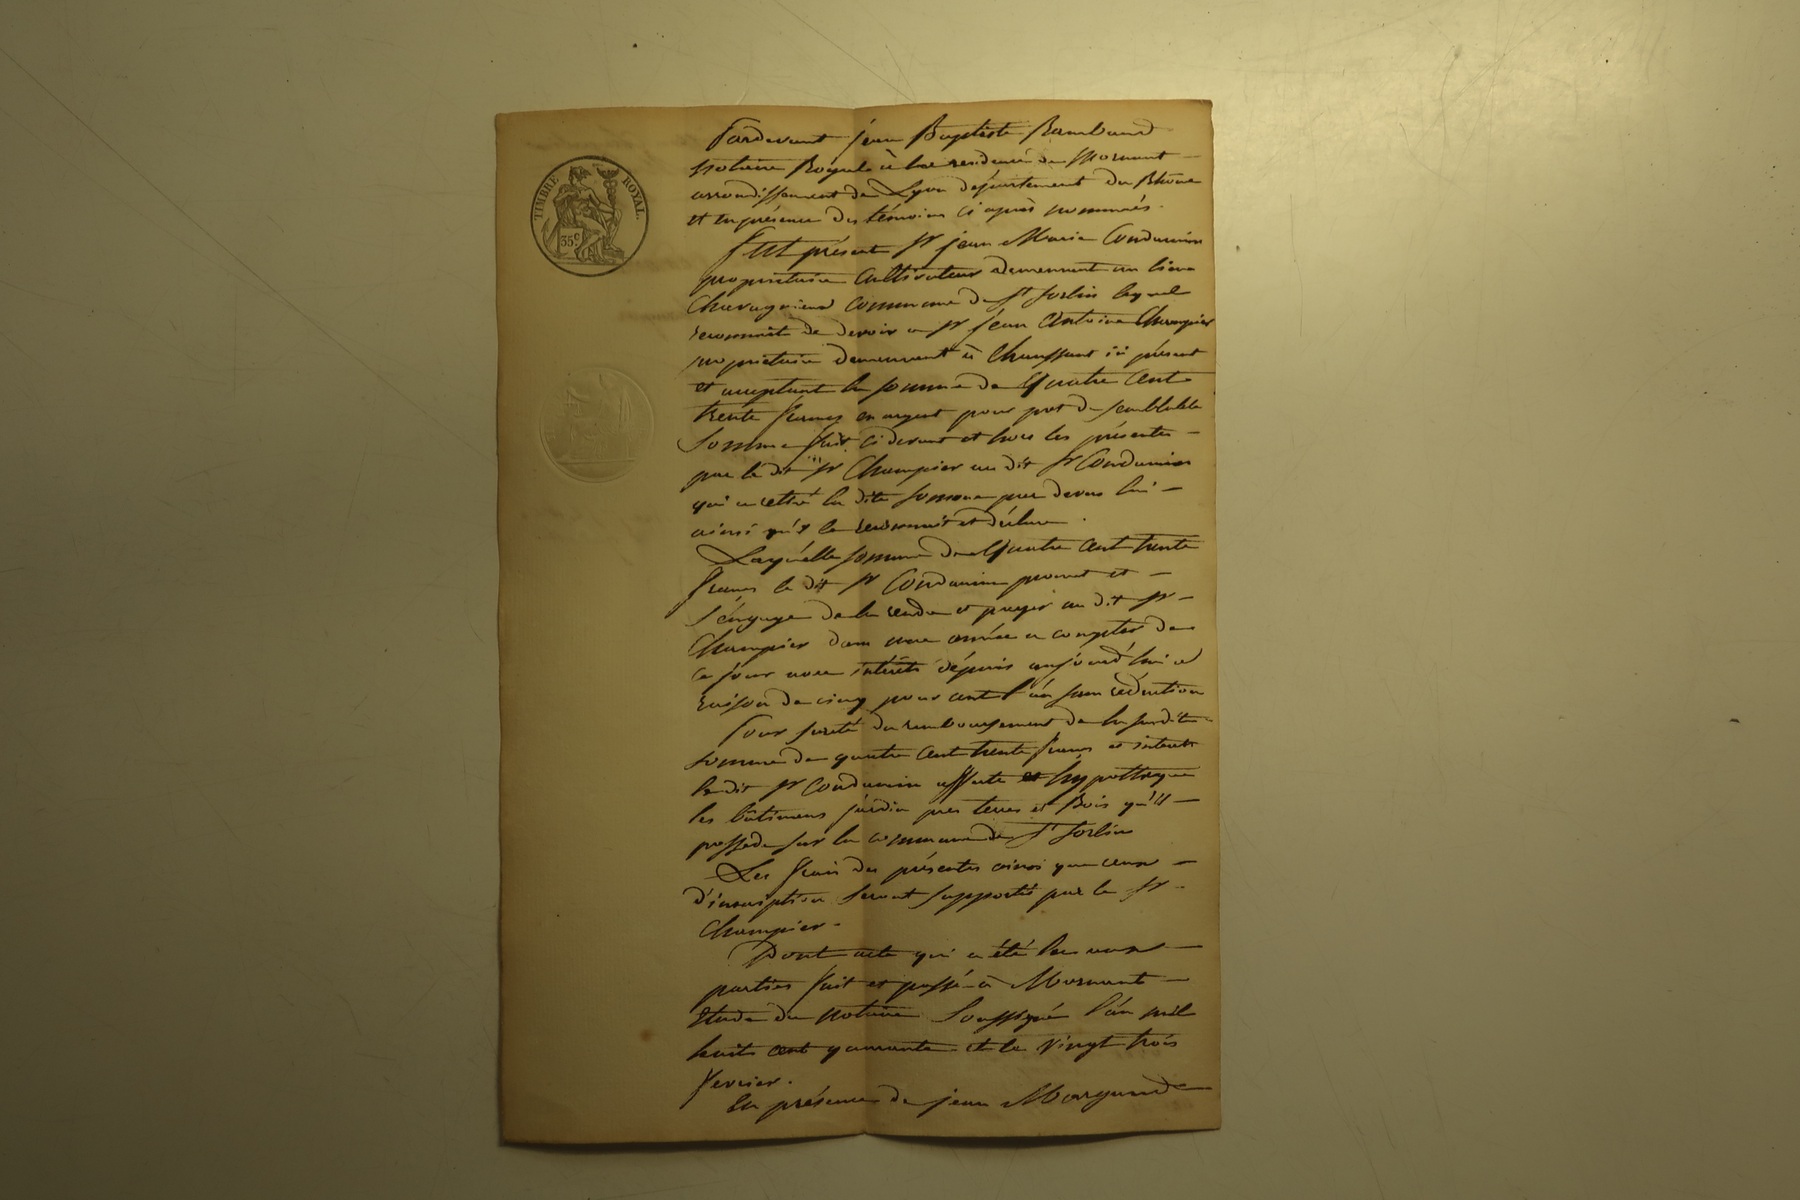 TIMBRE ROYAL.
35 c
Pardevant jean Baptiste Rambaud
Notaire Royale à la residence de Mornant
arrondissement de Lyon departement du Rhône
et en présence des témoins ci après nommés.
Fut présent Sr jean Marie Condamin
propriétaire Cultivateur demeurant au lieu
commune de St Sorlin lequel
reconnait de devoir a Sr jean Antoine Champier
propriétaire demeurant à Chaussant ici présent
et acceptant la somme de Quatre Cent
trente francs en argent pour pret de semblable
Somme fait ci devant et hors les présentes
par le dit Sr Champier au dit Sr Condamin
qui a retiré la dite somme par devers lui
ainsi qu'il le reconnait et déclare.
Laquelle somme de Quatre cent trente
francs le dit Sr Condamin promet et
s'éngage de la rendre et payer au dit Sr
Champier dans une année a compter de
ce jour avec intérêts dépuis aujourd'hui a
raison de cinq pour cent l'an sans réduction
Pour sureté du remboursement de la susdite
somme de quatre cent trente francs et interets
le dit Sr Condamin affecte et hypottheque
les bâtimens jardin pres terres et Bois qu'il
possede sur la commune de St Sorlin
Les frais des présentes ainsi que ceux
d'inscription seront supportés par le Sr
Champier.
Dont acte qui a été lu aux
parties fait et passé à Mornant
Etude du Notaire Soussigné l'an mil
huit cent quarante et le vingt trois
fevrier.
En présence de jean Margand